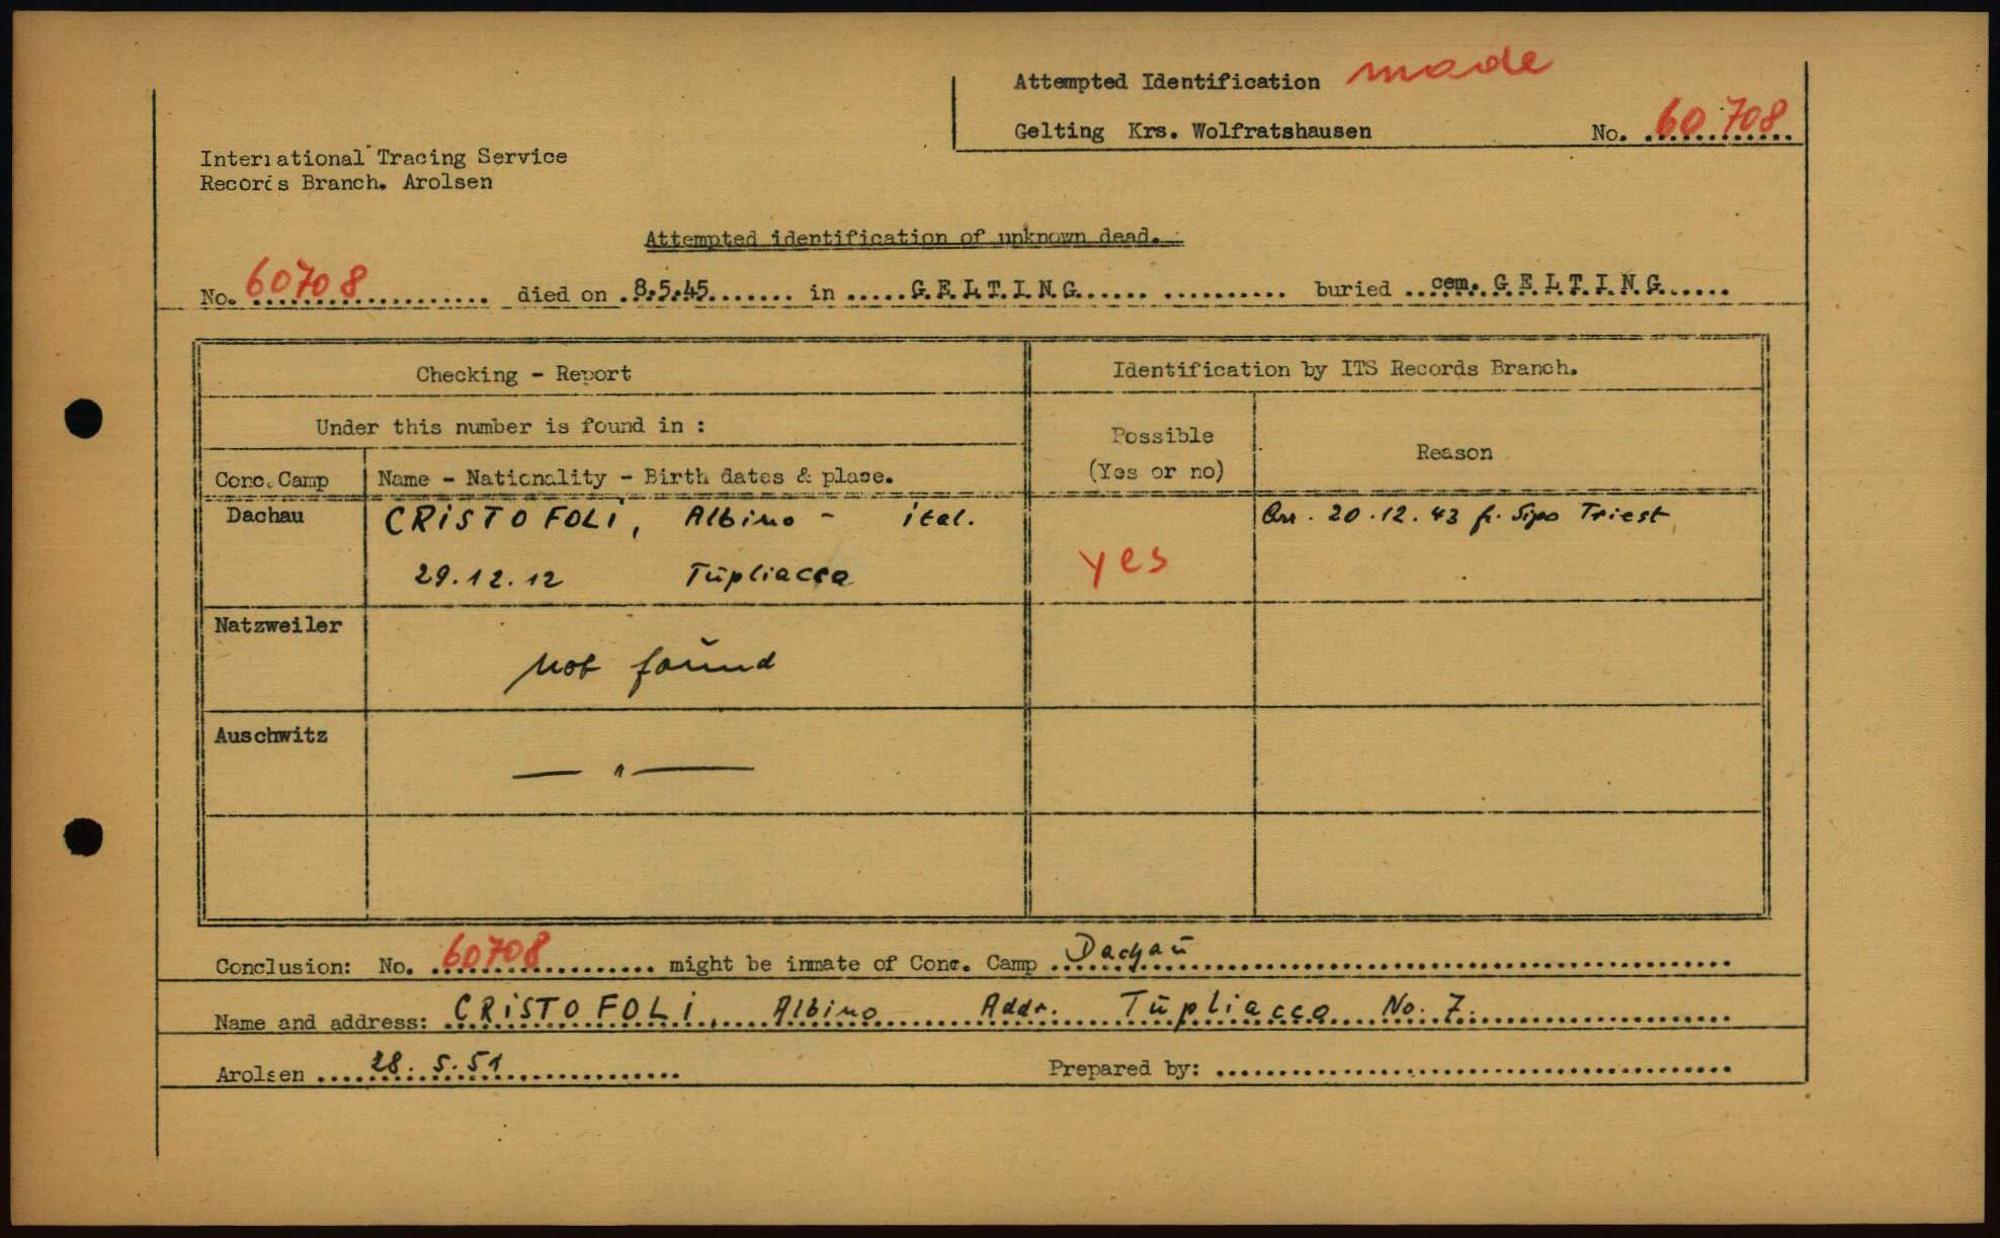 Attempted Identification made
Gelting Krs. Wolfratshausen No. 60708
International Tracing Service
Records Branch. Arolsen
Attempted identification of unknown dead.
No. 60708 died on 8.5.45 in GELTING buried cem. GELTING
Checking - Report
Identification by ITS Records Branch.
Under this number is found in :
Possible
(Yes or no)
Reason
Conc. Camp
Name - Nationality - Birth dates & place.
Dachau
CRISTOFOLI, Albino - ital.
Arr. 20.12.43 fr. Sipo Triest
29.12.12 Tŭpliacca
yes
Natzweiler
not foŭnd
Auschwitz
— " —
Conclusion: No. 60708 might be inmate of Conc. Camp Dachaŭ
Name and address: CRISTOFOLI, Albino Addr. Tŭpliacco No. 7.
Arolsen 28.5.51 Prepared by: